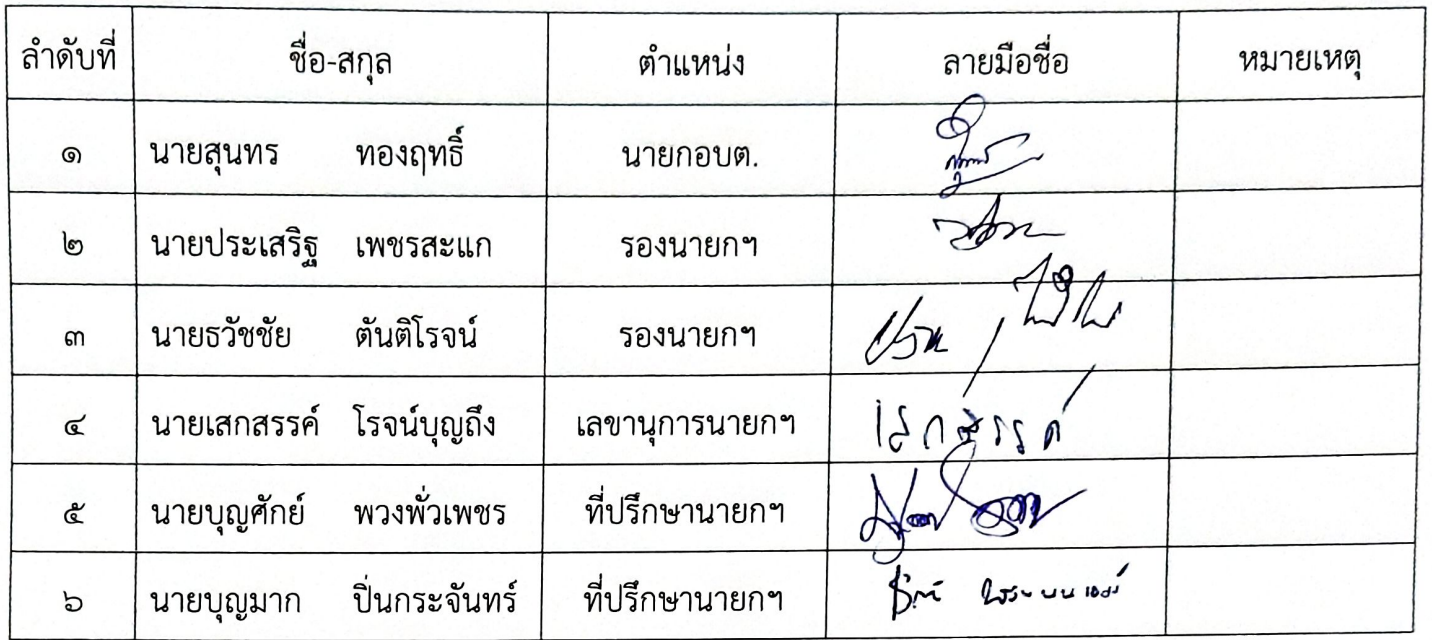 ลำดับที่ ชื่อ-สกุล ตำแหน่ง ลายมือชื่อ หมายเหตุ
๑ นายสุนทร ทองฤทธิ์ นายกอบต.
๒ นายประเสริฐ เพชรสะแก รองนายกฯ
๓ นายธวัชชัย ตันติโรจน์ รองนายกฯ
๔ นายเสกสรรค์ โรจน์บุญถึง เลขานุการนายกฯ เสกสรรค์
๕ นายบุญศักย์ พวงพั่วเพชร ที่ปรึกษานายกฯ
๖ นายบุญมาก ปิ่นกระจันทร์ ที่ปรึกษานายกฯ